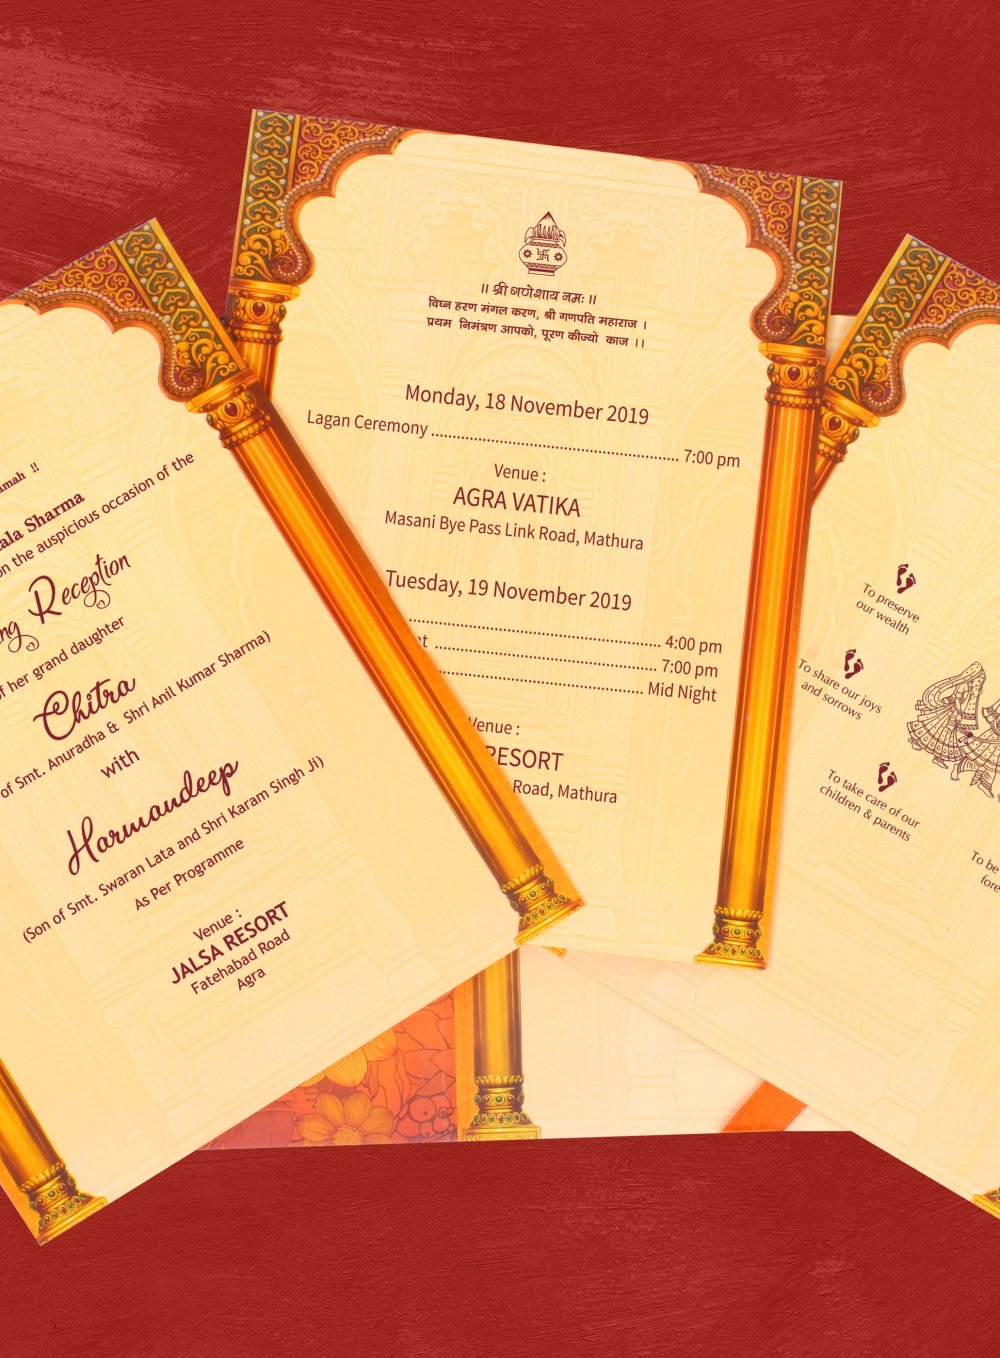 !!
ala Sharma
on the auspicious occasion of the
Reception
her grand daughter
Chitra
of Smt. Anuradha & Shri Anil Kumar Sharma)
with
Harmandeep
(Son of Smt. Swaran Lata and Shri Karam Singh Ji)
As Per Programme
Venue :
JALSA RESORT
Fatehabad Road
Agra
।। श्री गणेशाय नमः ।।
विघ्न हरण मंगल करण, श्री गणपति महाराज ।
प्रथम निमंत्रण आपको, पूरण कीज्यो काज ।।
Monday, 18 November 2019
Lagan Ceremony ........................................................ 7:00 pm
Venue :
AGRA VATIKA
Masani Bye Pass Link Road, Mathura
Tuesday, 19 November 2019
........................................................ 4:00 pm
........................................................ 7:00 pm
........................................................ Mid Night
Venue :
RESORT
Road, Mathura
To preserve
our wealth
To share our joys
and sorrows
To take care of our
children & parents
To be